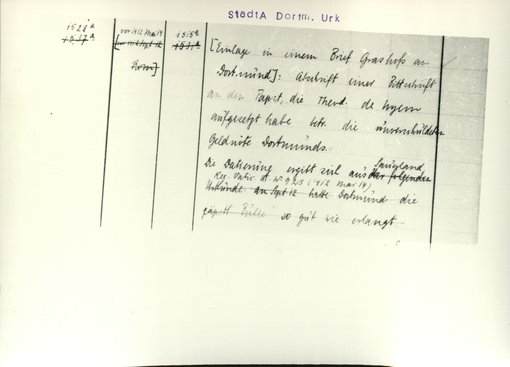 StadtA Dortm. Urk
1521a
1537a
vor 1412 Mai 19
Rom]
1515a
1531a
[Einlage in einem Brief Grashofs an
Dortmund]: Abschrift einer Bittschrift
an den Papst, die Theod. de
aufgesetzt habe betr. die unverschuldeten
Geldnöte Dortmunds.
Die Datierung ergibt sich aus der folgenden
Reg. Vatic. (1412 Mai 19)
Urkunde an Spt 12 hatte Dortmund die
päpstl. Bulle so gut wie erlangt.